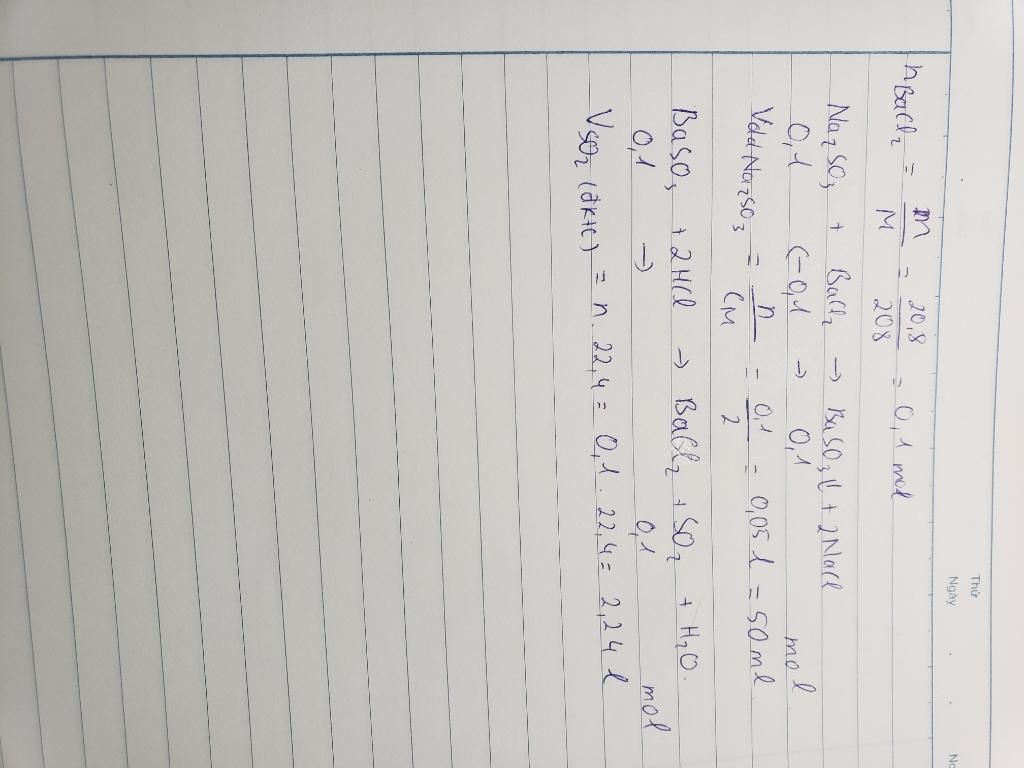 Thứ
Ngày
No
nBaCl₂ = m/M = 20,8/208 = 0,1 mol
Na₂SO₃ + BaCl₂ → BaSO₃↓ + 2NaCl
0,1 (-0,1 → 0,1 mol
VddNa₂SO₃ = n/CM = 0,1/2 = 0,05 l = 50 ml
BaSO₃ + 2HCl → BaCl₂ + SO₂ + H₂O.
0,1 → 0,1 mol
VSO₂ (đktc) = n. 22,4 = 0,1. 22,4 = 2,24 l